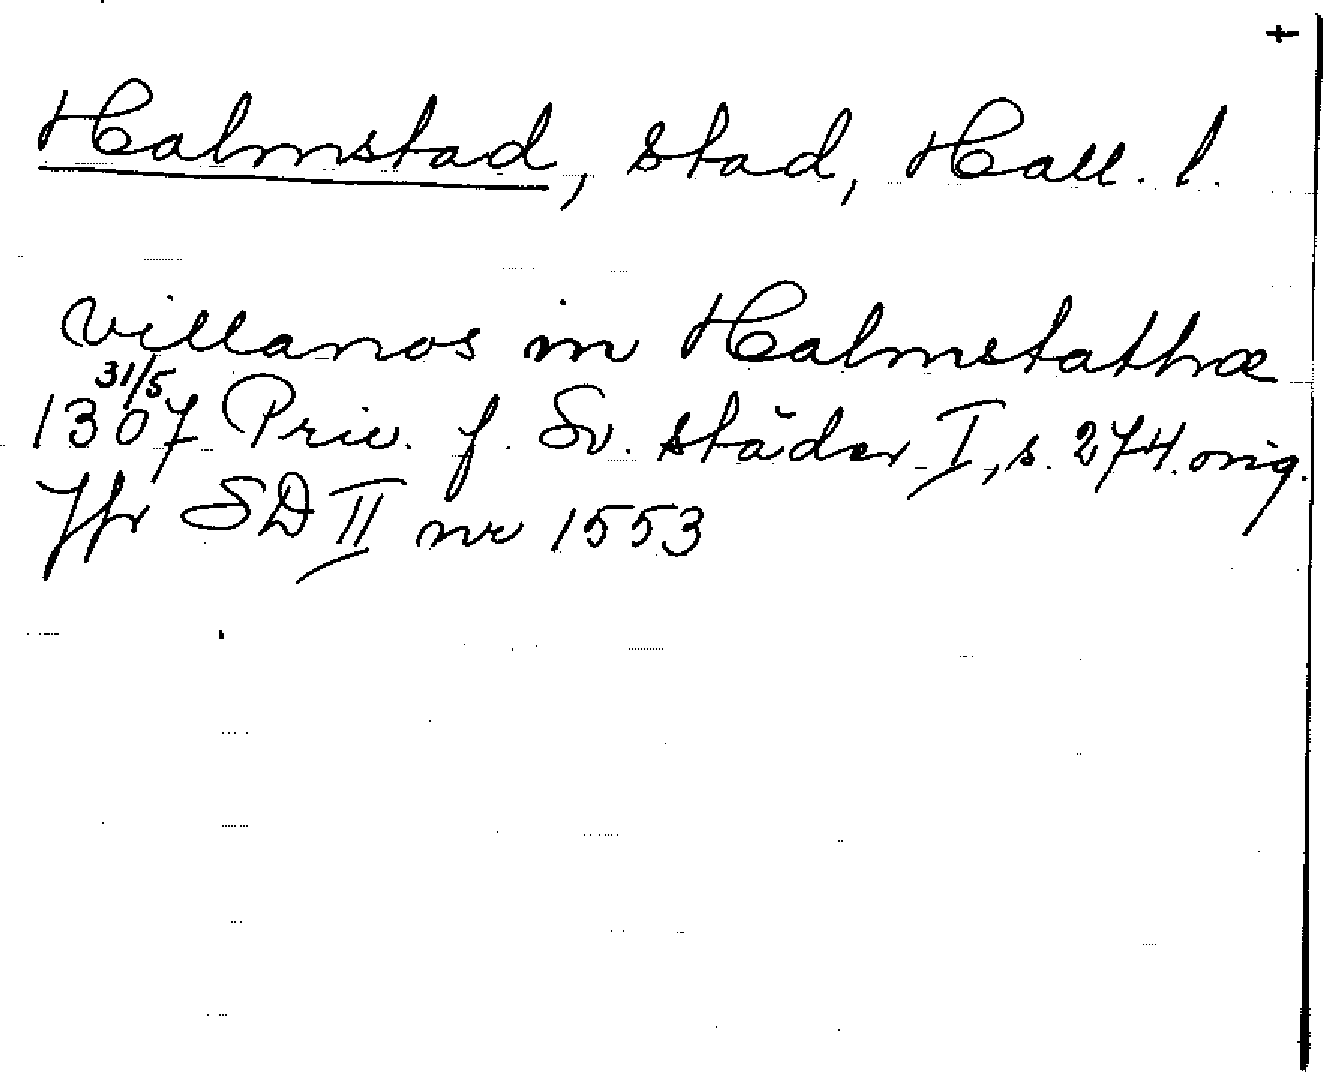 Halmstad, stad, Hall. l.
villanos in Halmstathæ
31/5
1307 Priv. f. Sv. städer I, s. 274. orig.
Jfr SD II nr 1553